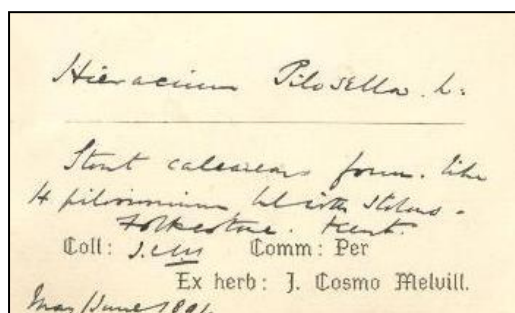 Hieracium Pilosella. L.
Stout calcareous form. like
H pilosissimum with stolons -
Folkestone. Kent.
Coll: J.C.M Comm: Per
Ex herb: J. Cosmo Melvill.
May/June